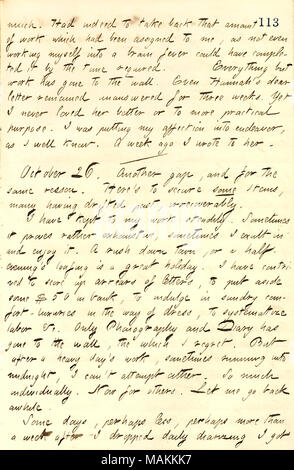 113
much. Had indeed to take back that amount
of work which had been assigned to me, as not even
working myself into a brain fever could have comple-
ted it by the time required. Everything but
work has gone to the wall. Even Hannah's dear
letter remained unanswered for three weeks. Yet
I never loved her better or to more practical
purpose. I was putting my affection into endeavor,
as I well knew. A week ago I wrote to her.
October 26. Another gap, and for the
same reason. Here's to secure some items,
many having drifted past, irrecoverably.
I have kept to my work steadily. Sometimes
it proves rather exhaustive, sometimes I exult in
and enjoy it. A rush down town, or a half
evening's loafing is a great holiday. I have contri-
ved to score up arrears of letters, to put aside
some $50 in bank, to indulge in sundry com-
fort-luxuries in the way of dress, to systematize
labor &c. Only Phonography and Diary has
gone to the wall, the which I regret. But
after a heavy day's work, sometimes running into
midnight, I can't attempt either. So much
individually. Now for others. Let me go back
awhile.
Some days, perhaps less, perhaps more than
a week after I dropped daily diarizing I got
alamy
Image ID: MAKKK7
www.alamy.com